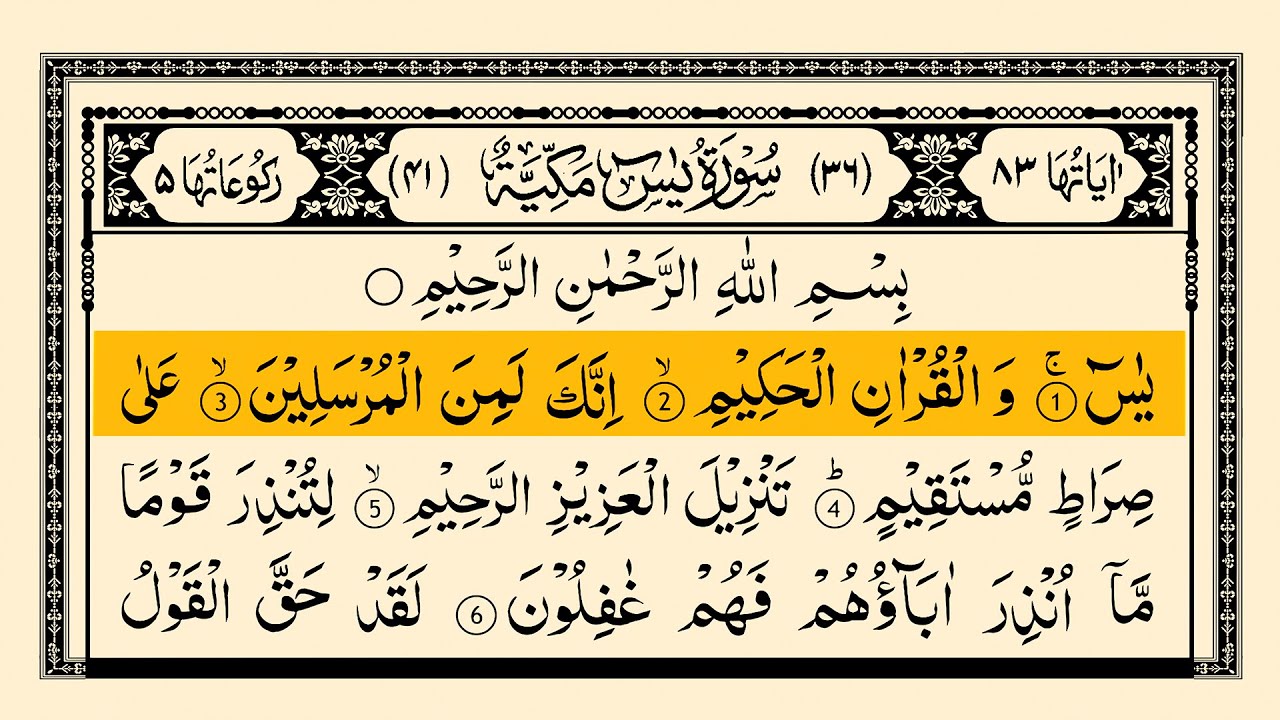 اٰیَاتُهَا ۸۳ (۳۶) سُوْرَةُ یٰسٓ مَکِّیَّةٌ (۴۱) رُکُوْعَاتُهَا ۵
بِسْمِ اللّٰهِ الرَّحْمٰنِ الرَّحِیْمِ ○
یٰسٓ ۚ ① وَ الْقُرْاٰنِ الْحَكِیْمِ ۙ ② اِنَّكَ لَمِنَ الْمُرْسَلِیْنَ ۙ ③ عَلٰی
صِرَاطٍ مُّسْتَقِیْمٍ ؕ ④ تَنْزِیْلَ الْعَزِیْزِ الرَّحِیْمِ ۙ ⑤ لِتُنْذِرَ قَوْمًا
مَّاۤ اُنْذِرَ اٰبَآؤُهُمْ فَهُمْ غٰفِلُوْنَ ⑥ لَقَدْ حَقَّ الْقَوْلُ